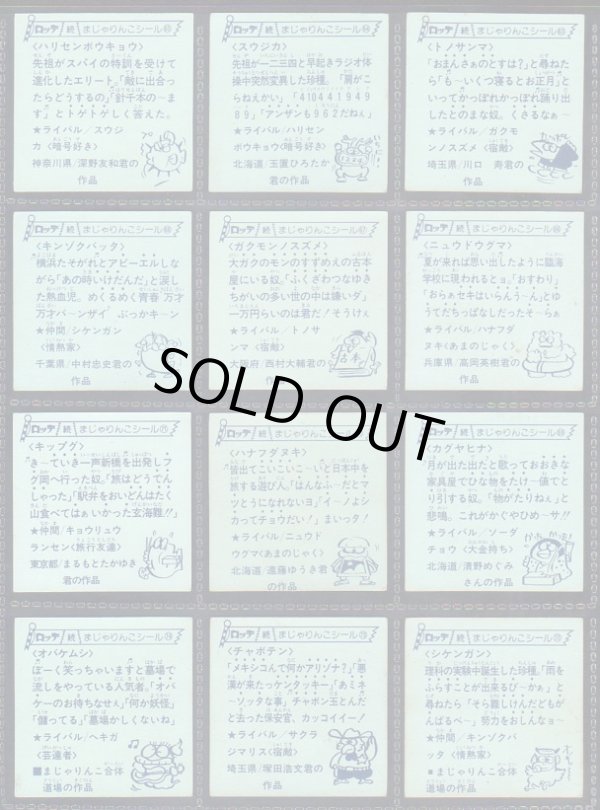 ロッテ 続 まじゃりんこシール
<ハリセンボウキョウ>
先祖がスパイの特訓を受けて
進化したエリート。「敵に出合っ
たらどうするの」「針千本の〜ま
す」とトゲトゲしく答えた。
★ライバル/スウジ
カ<暗号好き>
神奈川県/深野友和君の
作品
ロッテ 続 まじゃりんこシール
<スウジカ>
先祖が一二三四と早起きラジオ体
操中突然変異した珍種。「肩がこ
らねえかい」「410441949
89」「アンザンも962だねん」
★ライバル/ハリセン
ボウキョウ<暗号好き>
北海道/玉置ひろたか
君の作品
ロッテ 続 まじゃりんこシール
<トノサンマ>
「おまんさぁのとすは?」と尋ねた
ら「も〜いくつ寝るとお正月」と
いってかっぽれかっぽれ踊り出
したとのまな奴。くきるなぁ〜
★ライバル/ガクモ
ンノススメ<宿敵>
埼玉県/川口 寿君の
作品
ロッテ 続 まじゃりんこシール
<キンゾクバッタ>
横浜たそがれとアピーエルしな
がら「あの時いけだんだ」と涙し
た熱血児。めくるめく青春 万才
万才バ〜ンザイ ぶっかキ〜ン
★仲間/シケンガン
<情熱家>
千葉県/中村忠史君の
作品
ロッテ 続 まじゃりんこシール
<ガクモンノススメ>
大ガクのモンのすずめえの古本
屋にいる奴。「ふくざわつなゆき
ちがいの多い世の中は嫌いダ」
一万円らいのは君だ!そうけぇ
★ライバル/トノサ
ンマ<宿敵>
大阪府/西村大輔君の
作品
古本
ロッテ 続 まじゃりんこシール
<ニュウドウグマ>
夏が来れば思い出したように臨海
学校に現われるとョ。「おすわり」
「おらぁセキはいらんう〜ん」とゆ
うてだちっぱなしだったそ〜らぁ
★ライバル/ハナフダ
ヌキ<あまのじゃく>
兵庫県/高岡英樹君の
作品
ロッテ 続 まじゃりんこシール
<キップグ>
き〜ていき一声新橋を出発しフ
グ岡へ行った奴。「旅はどうでん
しゃった」「駅弁をおいどんはたく
山食べてはぁいかった玄海難!!」
★仲間/キョウリュウ
ランセン<旅行友達>
東京都 まるもとたかゆき
君の作品
ロッテ 続 まじゃりんこシール
<ハナフダヌキ>
皆出てこいこいこ〜いと日本中を
旅する遊び人。「はんなふ〜だとマ
ツとうになれないヨ」「イ〜ノよシ
カってチョうだい!」まいッタ!
★ライバル/ニュウド
ウグマ<あまのじゃく>
北海道/遠藤ゆうき君
の作品
ロッテ 続 まじゃりんこシール
<カグヤヒナ>
「月が出た出た」と歌っておおきな
家具屋でひな物をたけ〜値でと
り引する奴。「物がたりねぇ」と
悲鳴。これがかぐやひめ〜サ!!
★ライバル/ソーダ
チョウ<大金持ち>
北海道/清野めぐみ
さんの作品
ロッテ 続 まじゃりんこシール
<オバケムシ>
ぼーく笑っちゃいますと墓場で
流しをやっている人気者。「オバ
ケーのお待ちなせぇ」「何か妖怪」
「儲ってる」「墓場かしくないね」
★ライバル/ヘキガ
<芸達者>
■まじゃりんこ合体
道場の作品
ロッテ 続 まじゃりんこシール
<チャボテン>
「メキシコんで何かアリゾナ?」「悪
漢が来たっケンタッキー」「あミネ
〜ソッタな事」チャボン玉とんだ
と去った保安官、カッコイイー!
★ライバル/サクラ
ジマリス<宿敵>
埼玉県/塚田浩文君の
作品
ロッテ 続 まじゃりんこシール
<シケンガン>
理科の実験中誕生した珍種。「雨を
ふらすことが出来るぴ〜かぁ」と
尋ねたら「そら難しけんだどもが
んばるべ〜」努力をおしんなョ〜
★仲間/キンゾクバ
ッタ<情熱家>
■まじゃりんこ合体
道場の作品
SOLD OUT